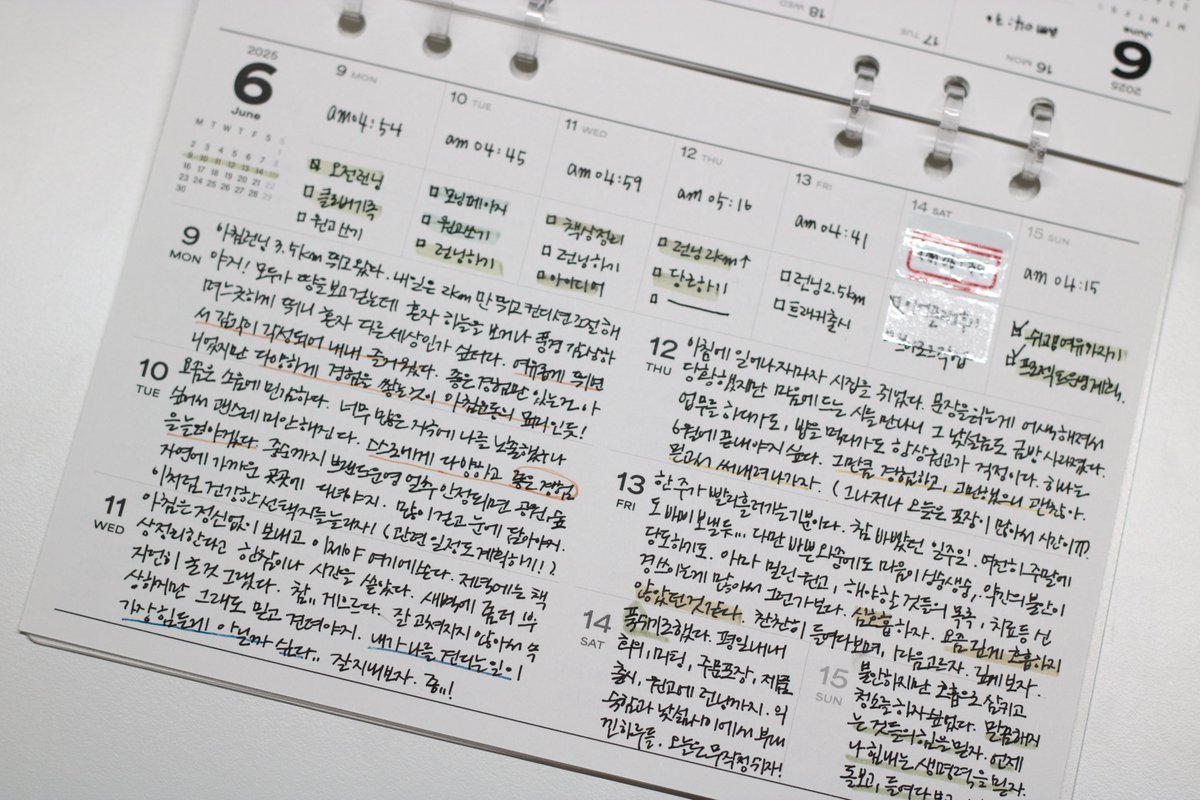 2025
6
June
M T W T F S S
1
2 3 4 5 6 7 8
9 10 11 12 13 14 15
16 17 18 19 20 21 22
23 24 25 26 27 28 29
30
9 MON
am 04:54
오전런닝
클리버기족
원고쓰기
10 TUE
am 04:45
모닝페이지
원고쓰기
런닝하기
11 WED
am 04:59
책상정리
런닝하기
아이디어
12 THU
am 05:16
런닝 2km↑
당근하기
13 FRI
am 04:41
런닝 2.5km
트래커출시
14 SAT
15 SUN
am 04:15
쉬고 여유가지기
9
MON
아침런닝 3.5km 뛰고왔다. 내일은 2km만 뛰고 컨디션 조절해
야지! 모두가 땅을 보고 걷는데 혼자 하늘을 보거나 풍경 감상하
며 느긋하게 뛰니 혼자 다른세상인가 싶다. 여유롭게 뛰면
서 감각이 각성되어 내내 즐거웠다. 좋은경험만 있는건 아
니었지만 다양하게 경험을 쌓는것이 아침운동의 묘미인듯!
10
TUE
요즘은 소음에 민감하다. 너무 많은 자극에 나를 노출하나
싶어서 괜스레 미안해진다. 스스로에게 다양하고 좋은 경험
을 늘려야겠다. 중순까지 브랜드운영 얼추 안정되면 공원, 숲
자연에 가까운 곳곳에 다녀야지. 많이 걷고 눈에 담아야지.
이처럼 건강한 선택지들 늘리자! (관련 일정도 계획하기!)
11
WED
아침은 정신없이 보내고 이제야 여기에 쓴다. 저녁에는 책
상정리한다고 한참이나 시간을 쏟았다. 새벽에 좀 더 부
지런히 쓸 것 그랬다. 참.. 게으르다. 잘 고쳐지지 않아서 속
상하지만 그래도 믿고 견뎌야지. 내가 나를 견디는 일이
가장 힘든게 아닐까 싶다.. 잘 지내보자. 흠..!
12
THU
아침에 일어나자마자 시집을 쥐었다. 문장을 읽는게 어색해져서
당황했지만 마음에 드는 시를 만나니 그 낯설음도 금방 사라졌다.
업무를 하다가도, 밥을 먹다가도 항상 원고가 걱정이다. 하나는
6월에 끝내야지 싶다. 그만큼 경험하고, 고민했으니 괜찮아.
원고써 써내려나가자. (그나저나 오늘은 포장이 많아서 시간이 ㅠ).
13
FRI
한 주가 빨리 흘러가는 기분이다. 참 바빴던 일주일. 여전히 주말에
도 바삐 보낼듯... 다만 바쁜 와중에도 마음이 싱숭생숭, 약간의 불안이
당도하기도. 아마 밀린 원고, 해야할 것들의 목록, 치료 등 신
경쓰이는게 많아서 그런가보다. 심호흡 하자. 요즘 길게 호흡하지
않았던 것 같다. 찬찬히 들여다보며, 마음 고르자. 길게 보자.
14
SAT
푹쉬기로했다. 평일내내
회의, 미팅, 주문포장, 제품
출시, 원고에 런닝까지. 익
숙함과 낯섦 사이에서 부대
낀 하루들. 오늘은 무작정 쉬자!
15
SUN
불안하지만 호흡으로 삼키고
청소를 하자 싶었다. 말끔해지
는 것들의 힘을 믿자. 언제
나 힘내는 생명력을 믿자.
돌보고, 들여다보고
2025
6
June
16 MON
am 04:30
17 TUE
18 WED